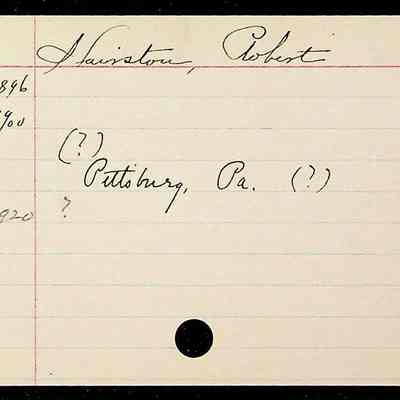 Hairston, Robert
896
900
(?)
Pittsburg, Pa. (?)
920 ?